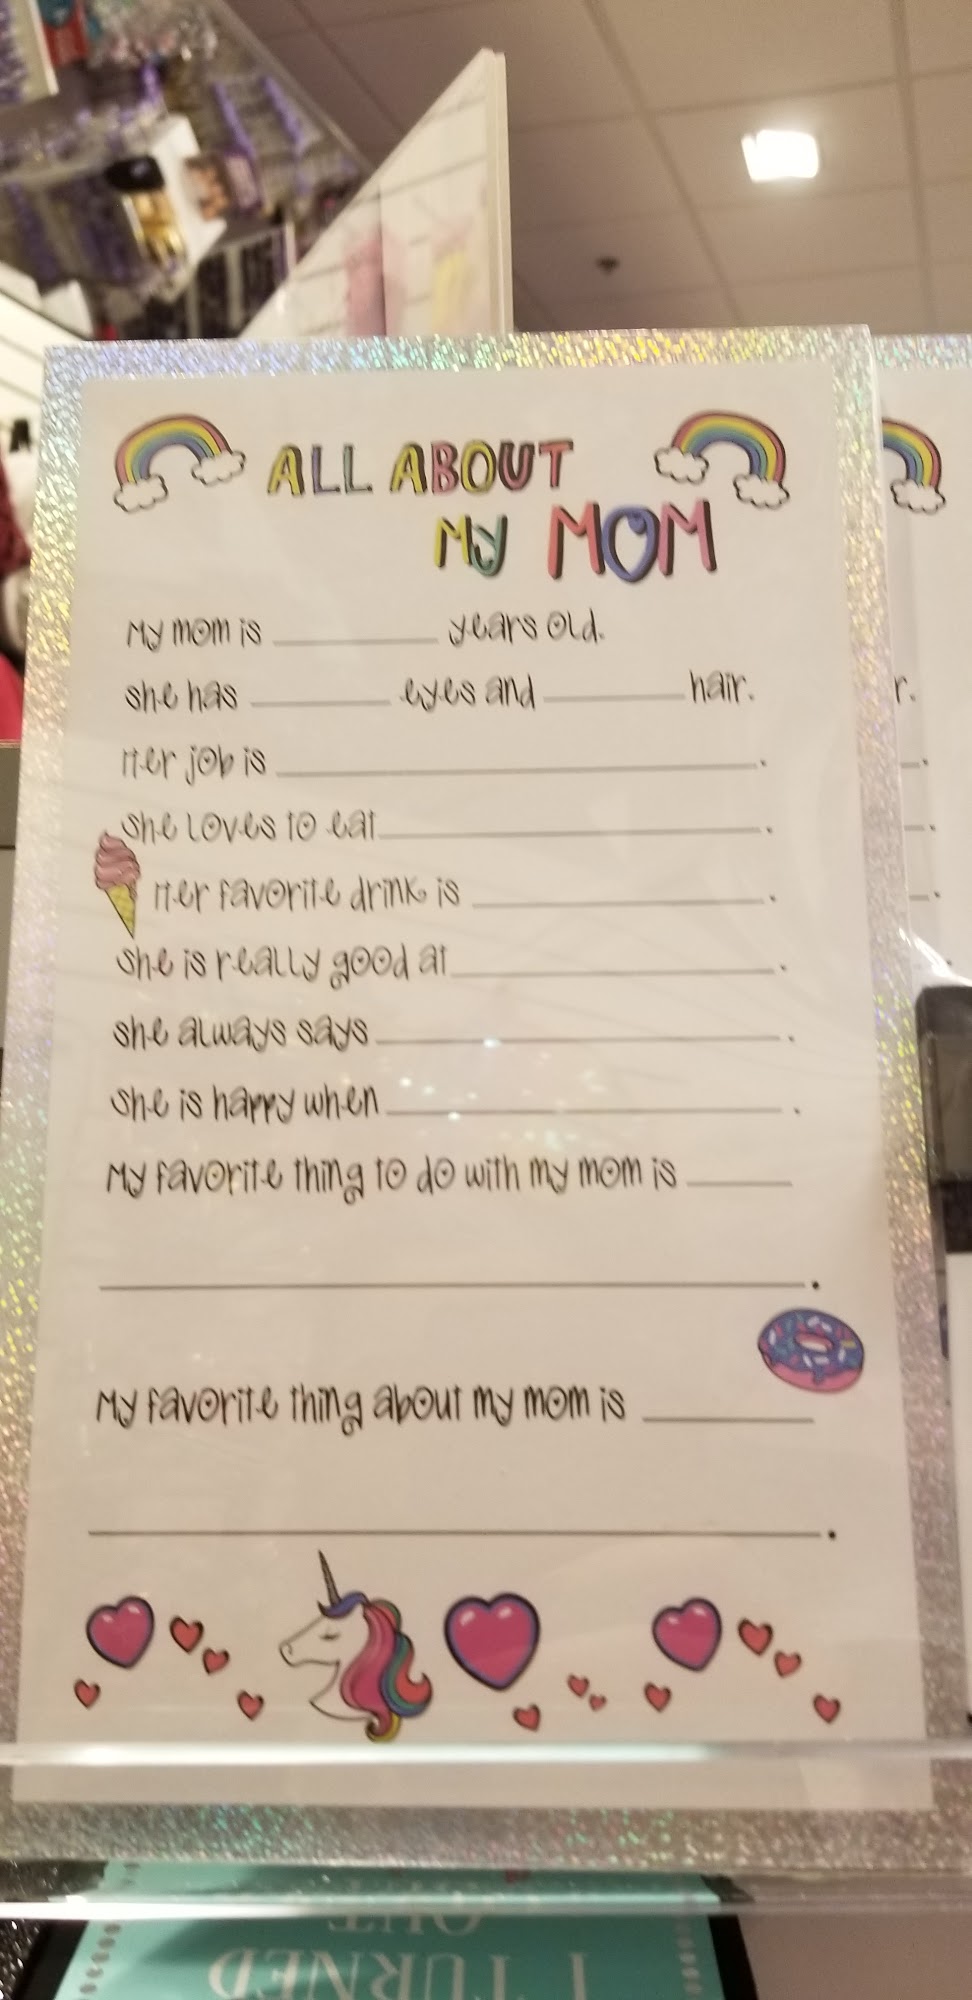 ALL ABOUT
MY MOM
My mom is ________ years old.
she has ________ eyes and ________ hair.
Her job is ________.
she loves to eat ________.
Her favorite drink is ________.
she is really good at ________.
she always says ________.
she is happy when ________.
My favorite thing to do with my mom is ________
________.
My favorite thing about my mom is ________
________.
r.
I TURNED
OUT